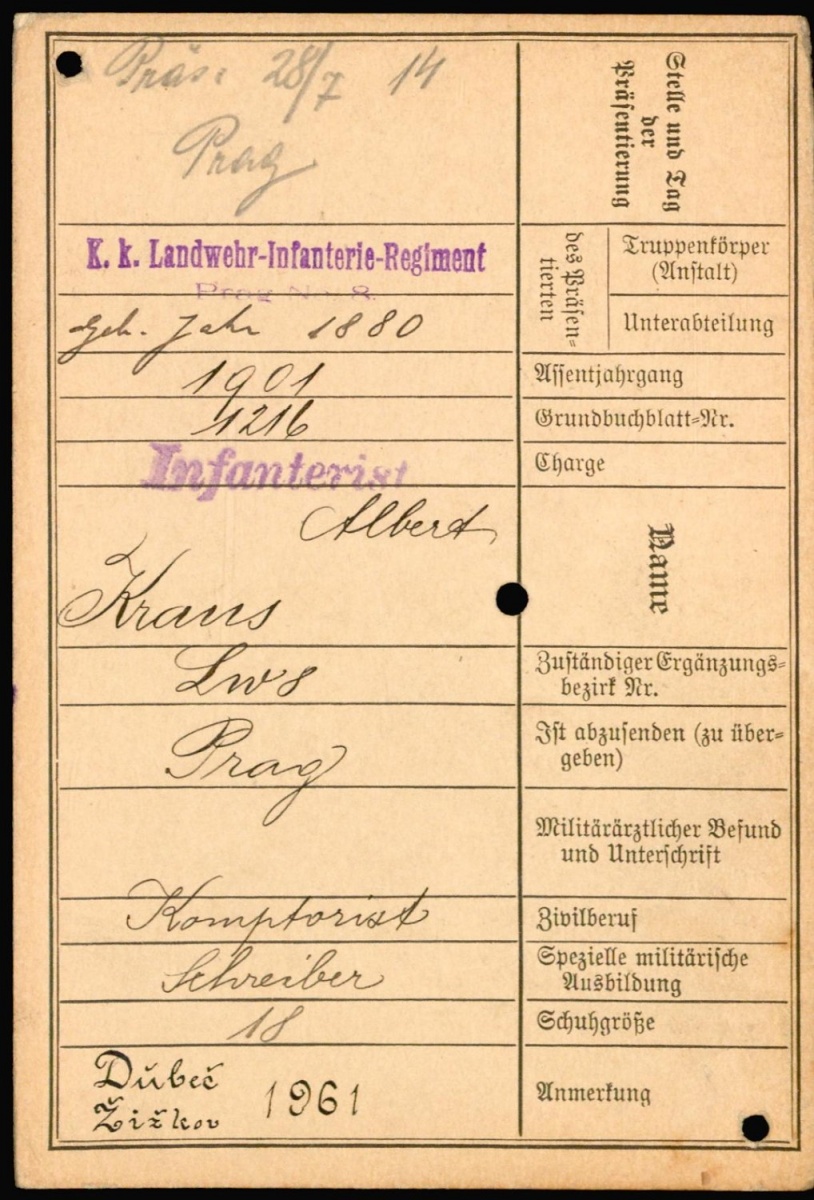 Präs: 28/7 14
Prag
Stelle und Tag
der
Präsentierung
K. k. Landwehr-Infanterie-Regiment
Prag No. 8.
des Präsen-
tierten
Truppenkörper
(Anstalt)
geb. Jahr 1880
Unterabteilung
1901
Assentjahrgang
1216
Grundbuchblatt-Nr.
Infanterist
Charge
Albert
Kraus
Name
Lw 8
Zuständiger Ergänzungs-
bezirk Nr.
Prag
Ist abzusenden (zu über-
geben)
Militärärztlicher Befund
und Unterschrift
Komptorist
Zivilberuf
Schreiber
Spezielle militärische
Ausbildung
18
Schuhgröße
Dubeč
Žižkov 1961
Anmerkung